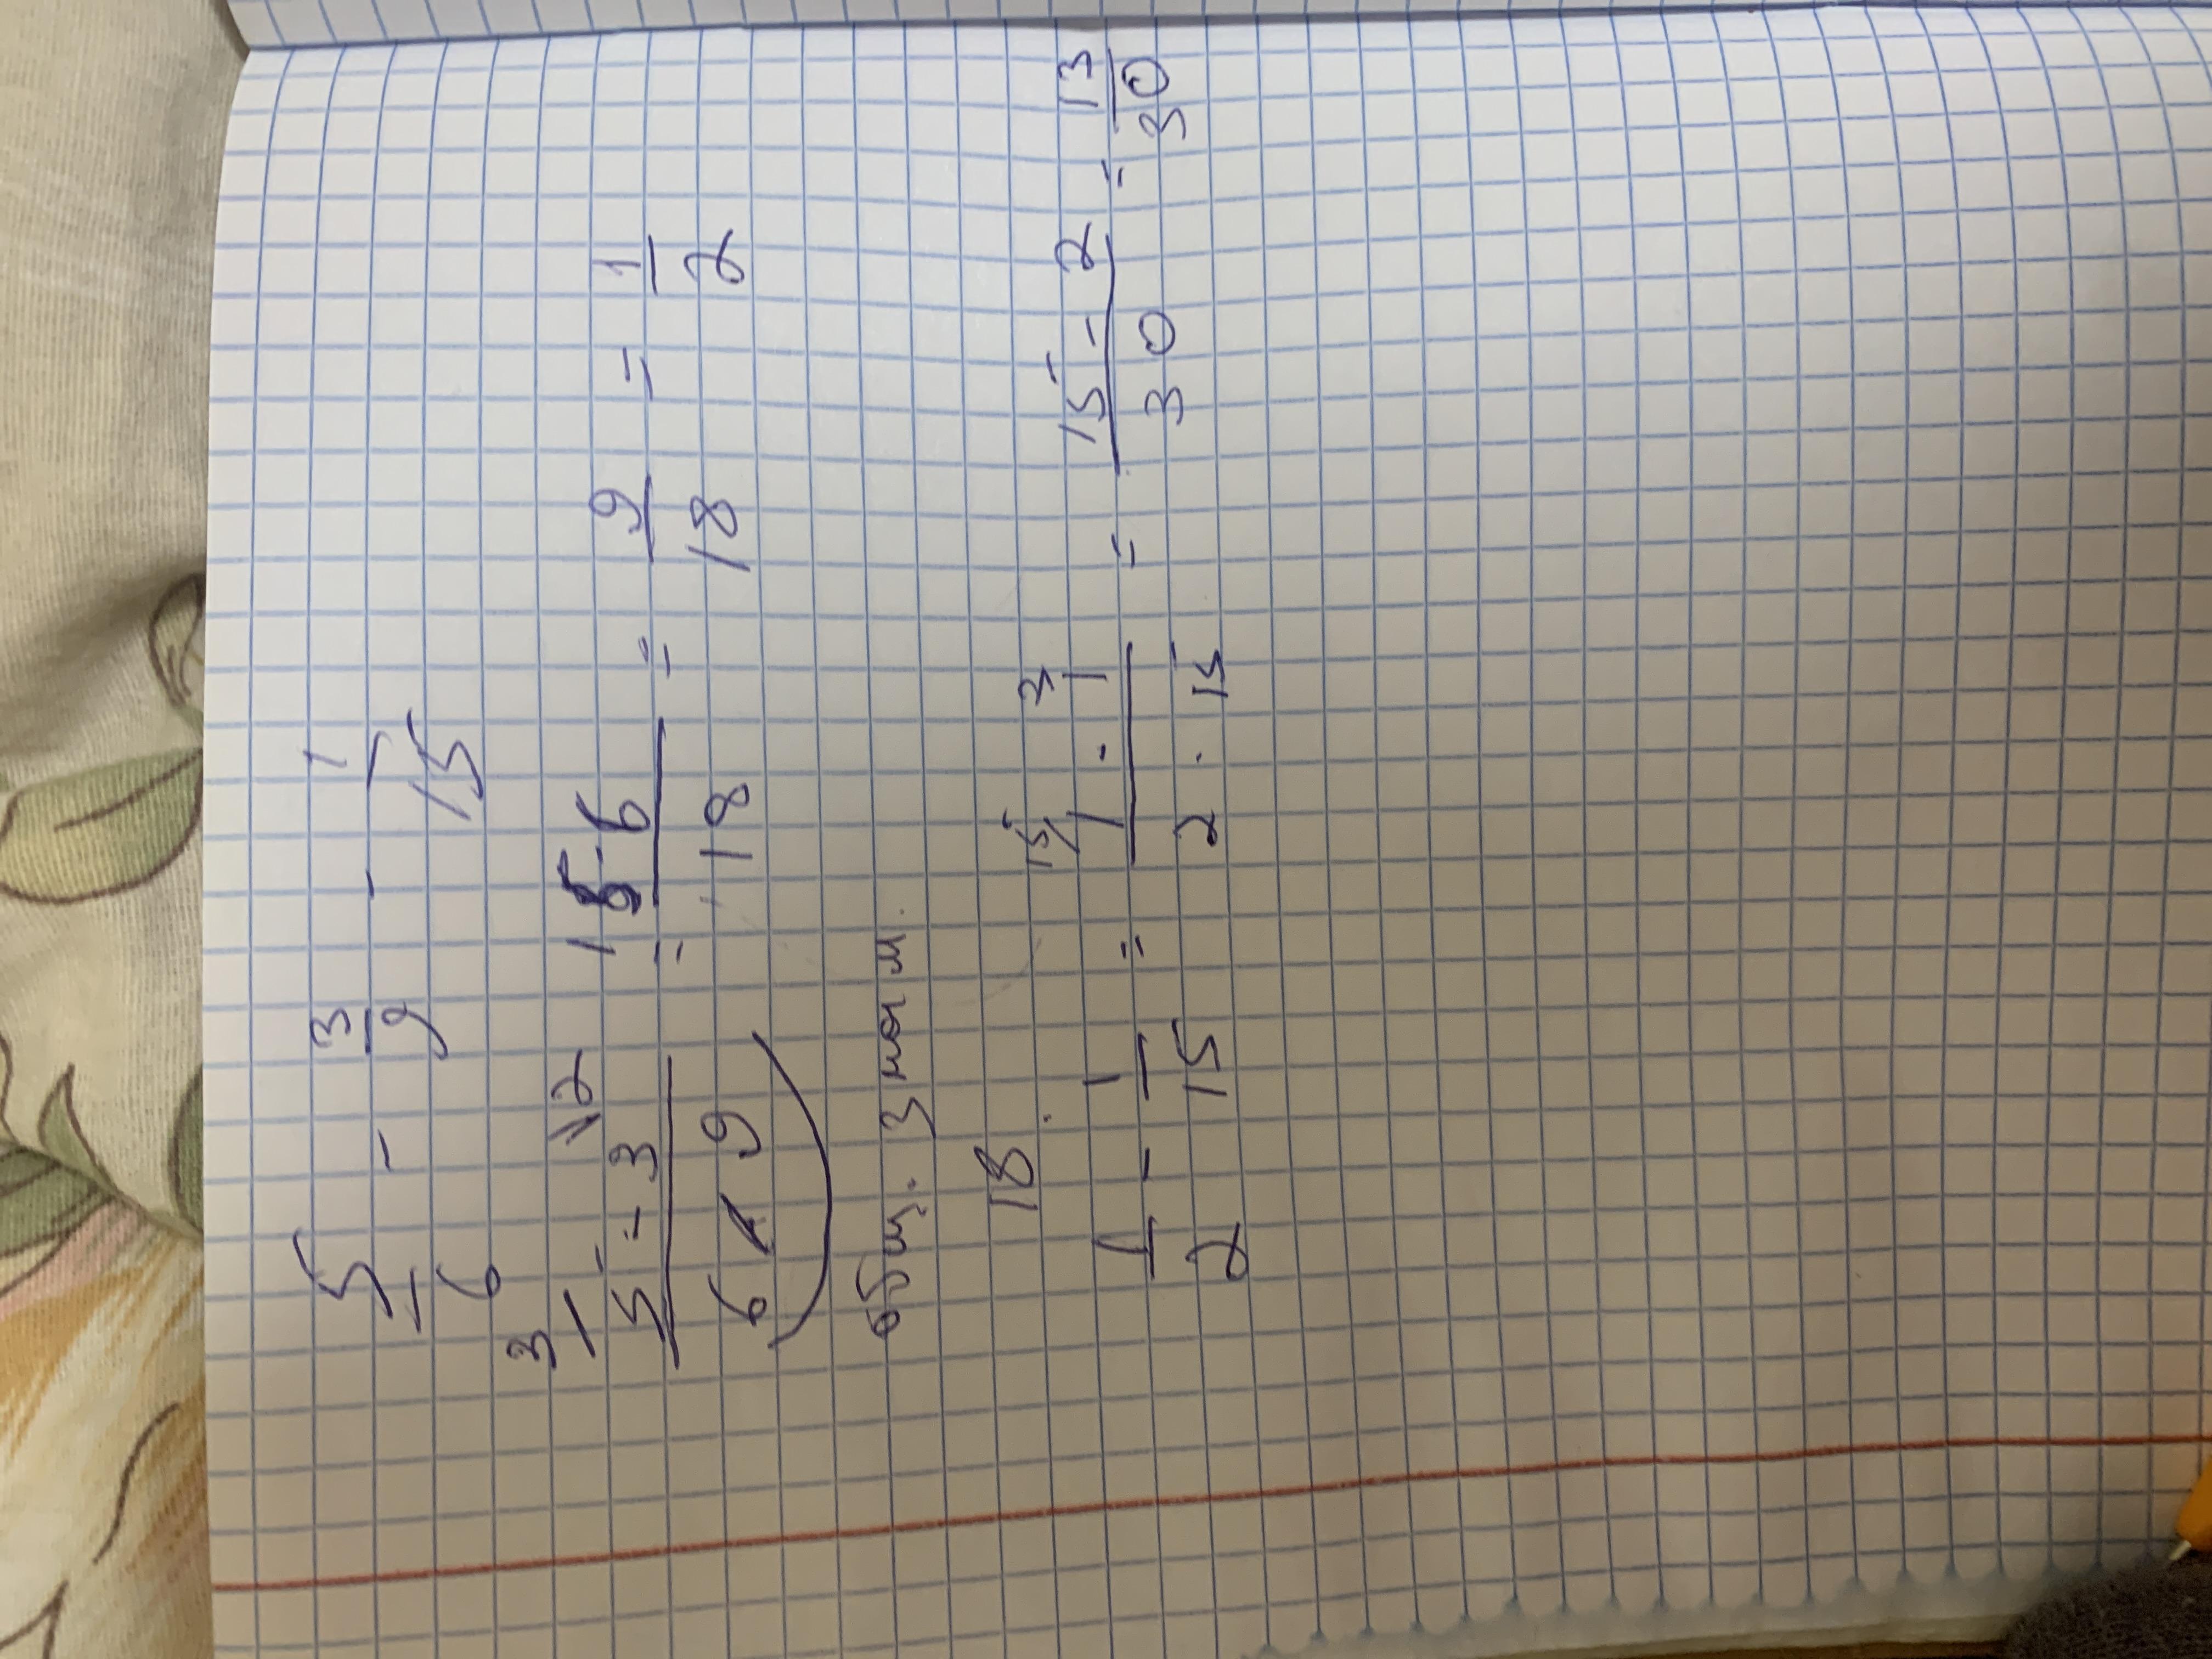 5/6 - 3/9 - 1/15
3\ 5 - 3 \2 / 6 x 9 = 15-6 / 18 = 9/18 = 1/2
общ. знам.
18.
1/2 - 1/15 = 15/ 1 - 1 / 2 · 15 = 15-2 / 30 = 13/30